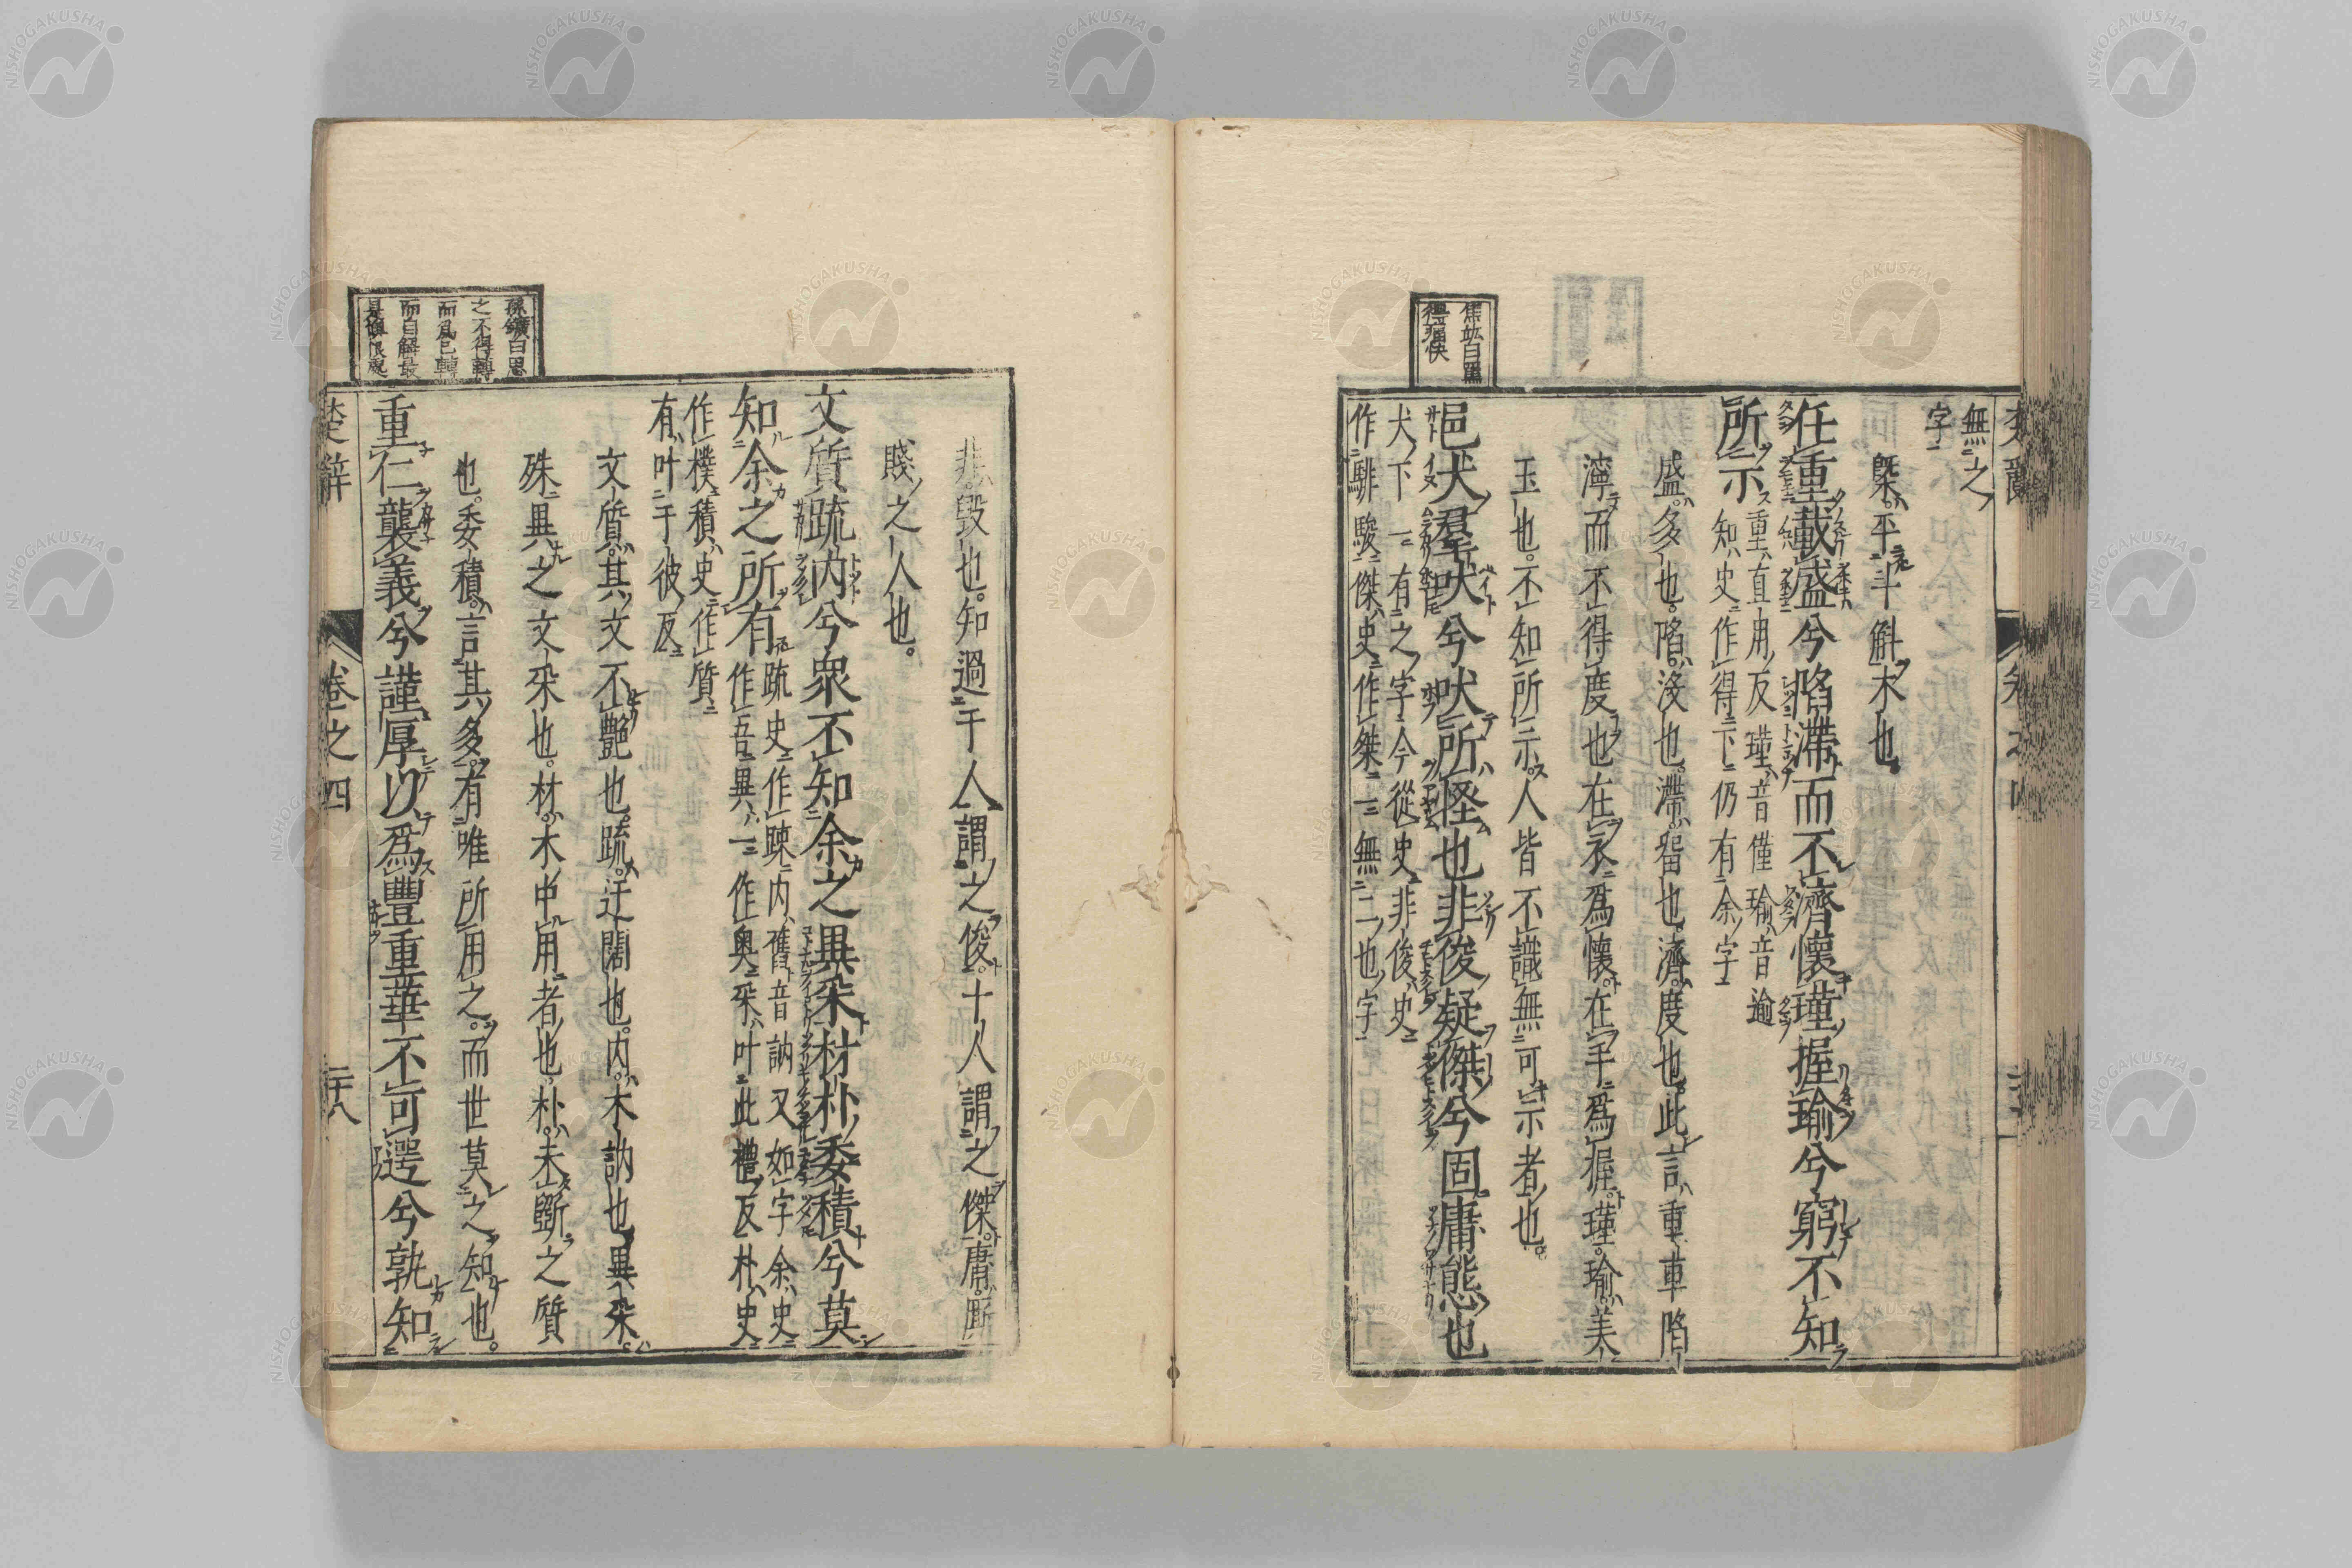 無之
字
槩平斗斛木也
任重載盛兮陷滯而不濟懷瑾握瑜兮窮不知
所示
重直用反瑾音僅瑜音逾
知史作得下仍有余字
盛多也陷沒也滯留也濟度也此言重車陷
濘而不得度也在衣爲懷在手爲握瑾瑜美
玉也不知所示人皆不識無可示者也
焦竑曰罵
得痛快
邑犬羣吠兮吠所怪也非俊疑傑兮固庸態也
犬下一有之字今從史非俊史
作誹駿傑史作桀一無二也字
非毀也知過千人謂之俊十人謂之傑庸厮
賤之人也
文質疏內兮衆不知余之異采材朴委積兮莫
知余之所有
疏史作疎內舊音訥又如字余史
作吾異一作奧采叶此禮反朴史
作樸積史作質
有叶于彼反
文質其文不艷也疏迂闊也內木訥也異采
殊異之文采也材木中用者也朴未斲之質
也委積言其多有唯所用之而世莫之知也
孫鑛曰思
之不得轉
而爲已轉
而自解最
是恨處
重仁襲義兮謹厚以爲豐重華不可遻兮孰知
楚辭 卷之四 二十八